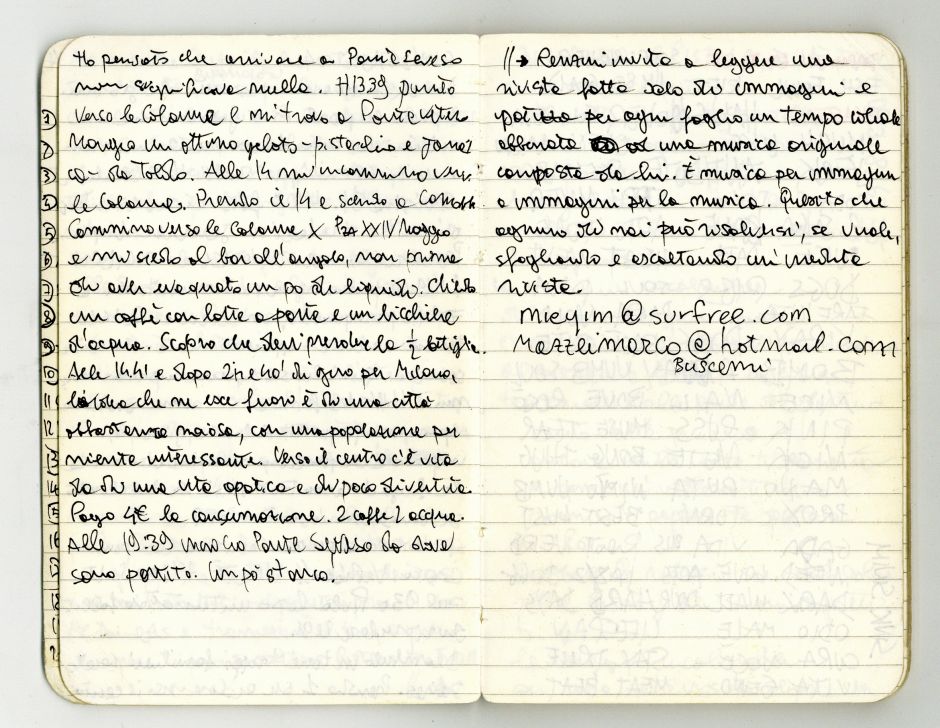 Ho pensato che arrivare a Ponte Seveso
non significava nulla. H 13.39 punto
1) verso le Colonne e mi trovo a Ponte Vetero
2) Mangio un ottimo gelato - pistacchio e
3) co - da Toldo. Alle 14 mi incammino verso
4) le Colonne. Prendo il 14 e scendo a
5) Cammino verso le Colonne X P.za XXIV Maggio
6) e mi siedo al bar all'angolo, non prima
7) di aver evaquato un po di liquido. Chiedo
8) un caffè con latte a parte e un bicchiere
9) d'acqua. Scopro che devi prendere la ½ bottiglia.
10) Alle 14.41 e dopo 2 ire e 40' di giro per Milano,
11 l'idea che ne esce fuori è di una città
12 abbastanza noiosa, con una popolazione per
13 niente interessante. Verso il centro c'è vita
14 da di una vita apatica e di poco divertita.
15 Pago 4€ la consumazione. 2 caffè 1 acqua.
16 Alle 19:39 Ponte Seveso da dove
17 sono partito. Un pò stanco!
18
1
2
//→ Renzini invita a leggere una
rivista fatta solo di immagini e
per ogni foglio un tempo
abbinato una musica originale
composta da lui. È musica per immagini
o immagini per la musica. Questo che
ognuno di noi può risolversi, se vuole,
sfogliando e ascoltando un'inedita
rivista.
mieyim@surfree.com
mazzeimarco@hotmail.com
Buscemi